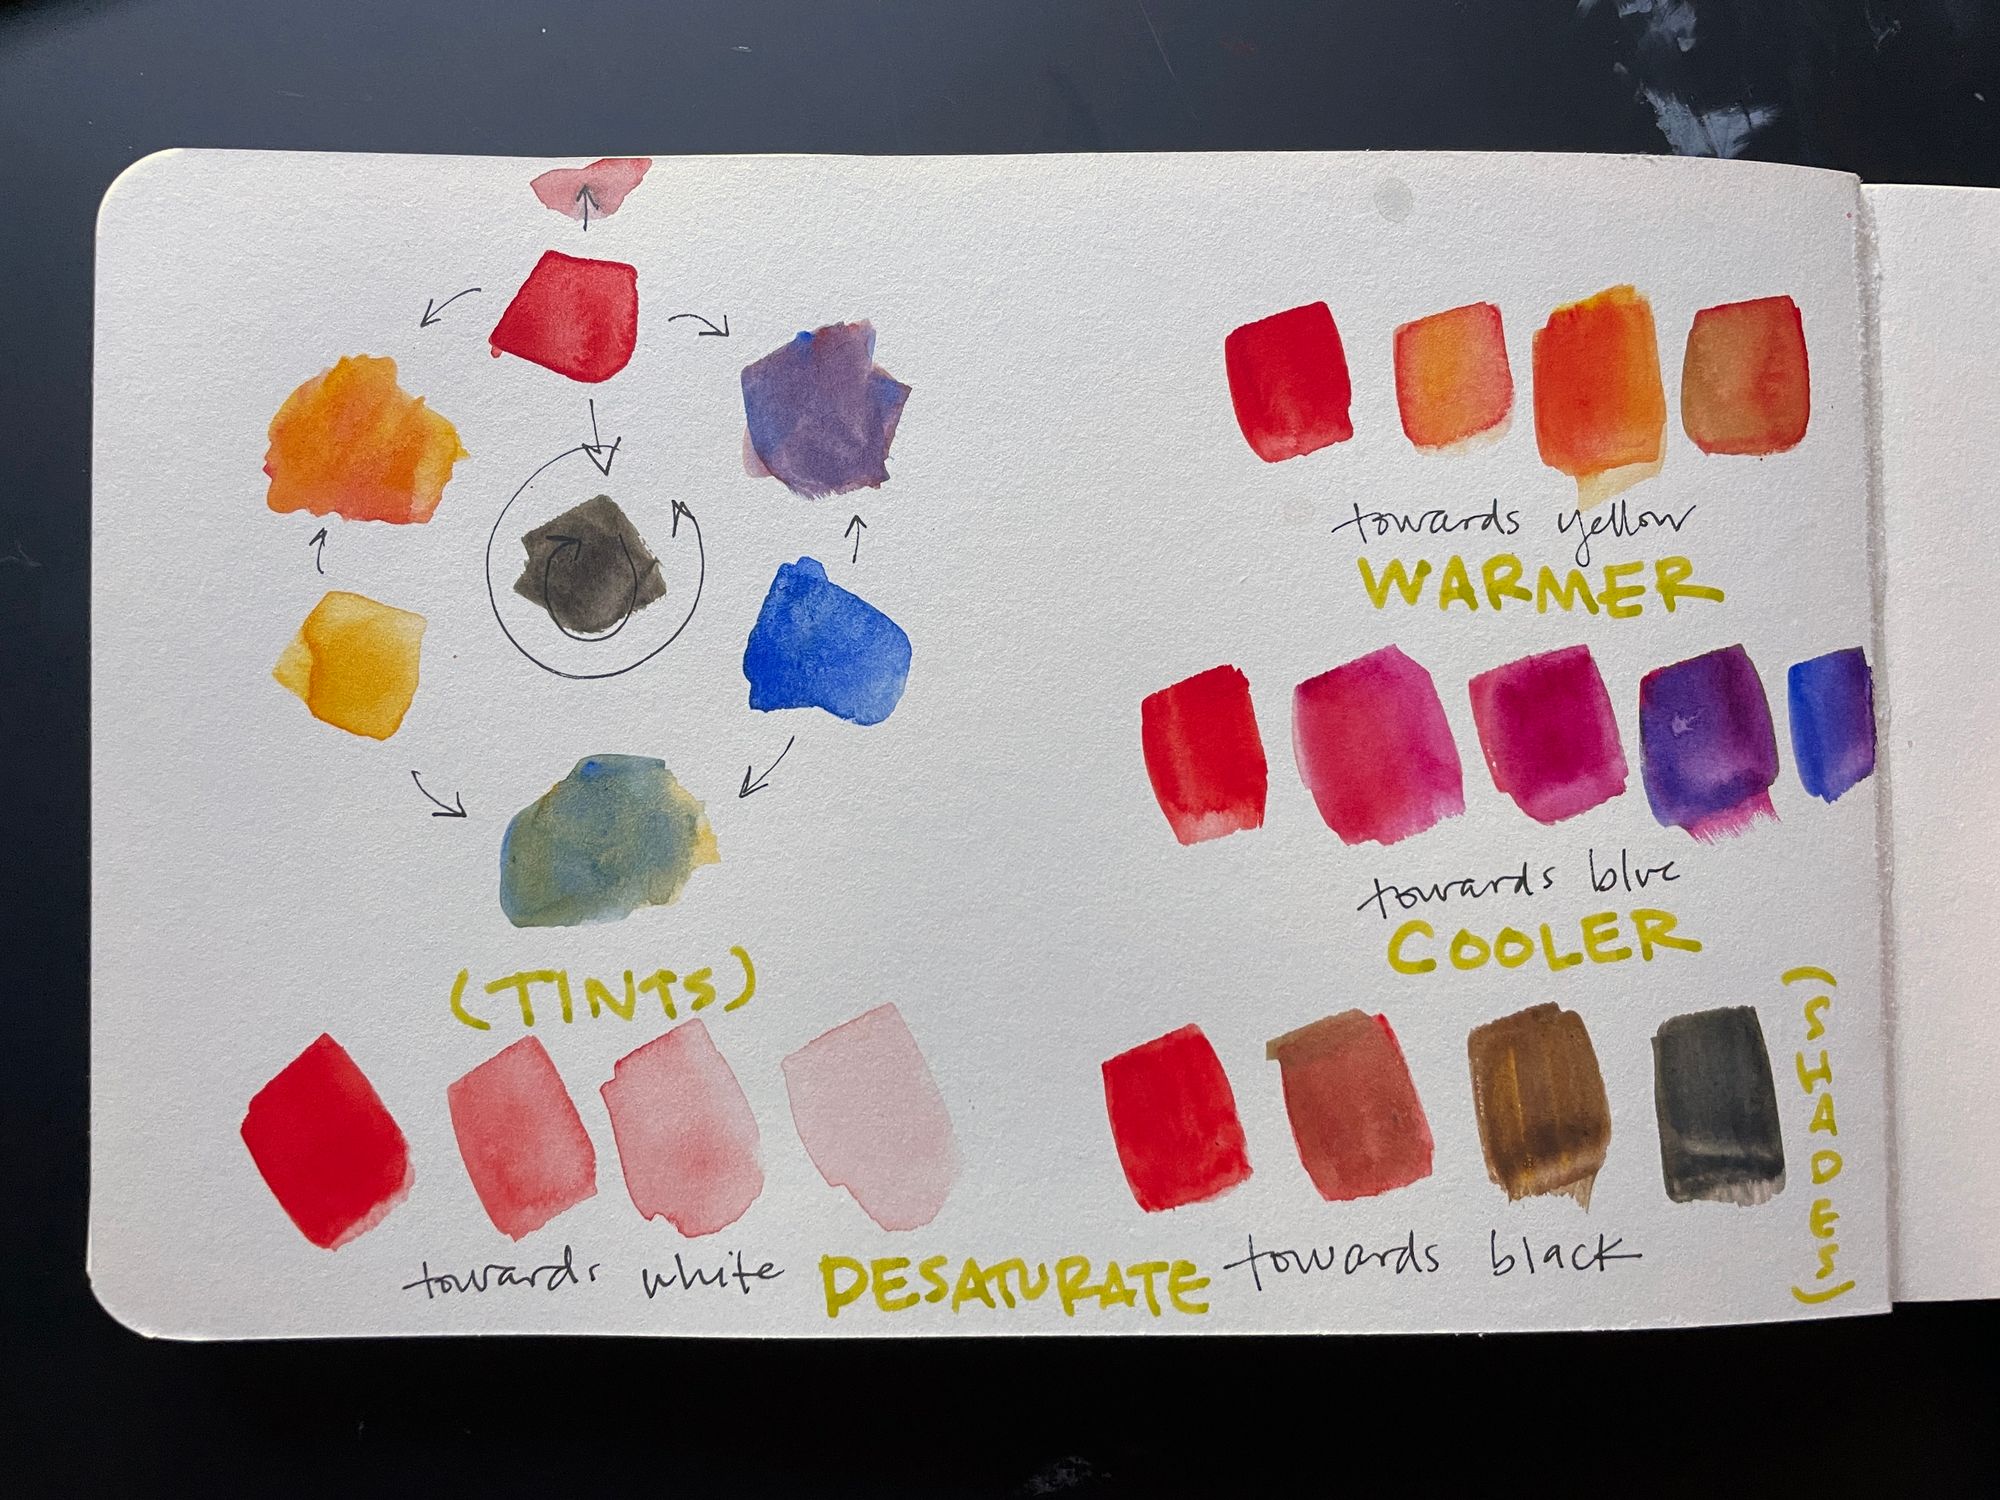 towards yellow
WARMER
towards blue
COOLER
(TINTS)
towards white
DESATURATE
towards black
(SHADES)